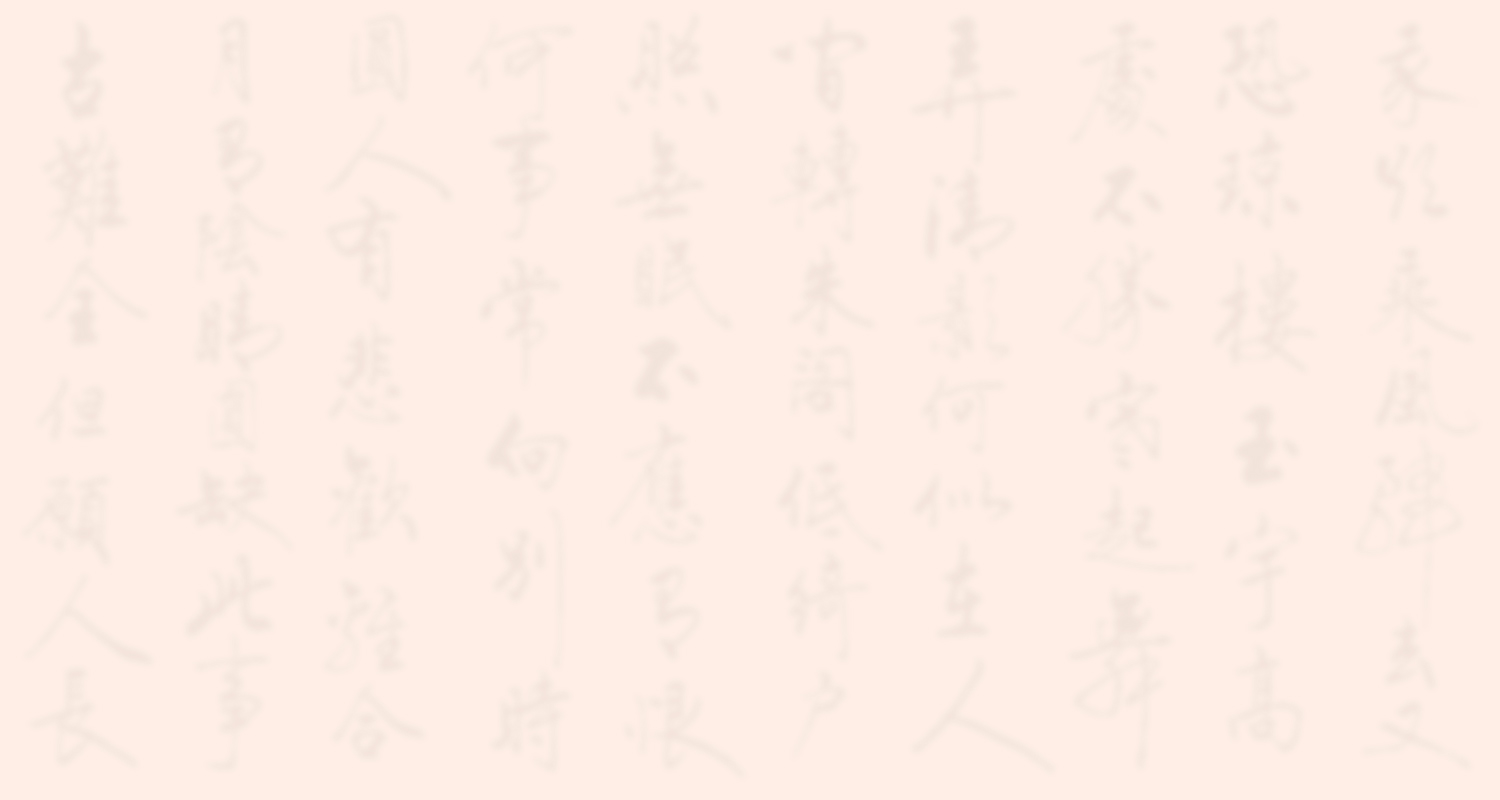 我欲乘風歸去又
恐琼樓玉宇高
處不勝寒起舞
弄清影何似在人
間轉朱閣低綺户
照無眠不應有恨
何事常向別時
圓人有悲歡離合
月有陰晴圓缺此事
古難全但願人長